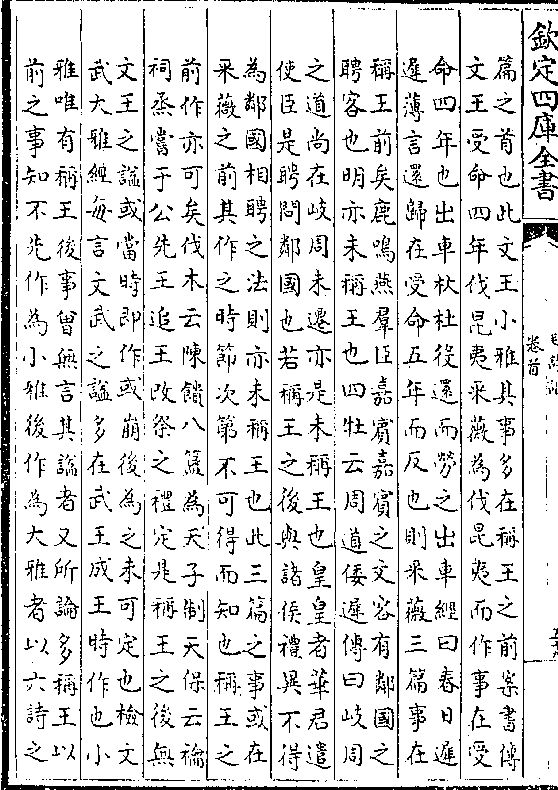 欽定四庫全書
卷首
篇之首也此文王小雅其事多在稱王之前案書傳
文王受命四年伐昆夷采薇為伐昆夷而作事在受
命四年也出車杕杜役還而勞之出車經曰春日遲
遲薄言還歸在受命五年而反也則采薇三篇事在
稱王前矣鹿鳴燕羣臣嘉賓嘉賓之文容有鄰國之
聘客也明亦未稱王也四牡云周道倭遲傳曰岐周
之道尚在岐周未遷亦是未稱王也皇皇者華君遣
使臣是聘問鄰國也若稱王之後與諸侯禮異不得
為鄰國相聘之法則亦未稱王也此三篇之事或在
采薇之前其作之時節次第不可得而知也稱王之
前作亦可矣伐木云陳饋八簋為天子制天保云禴
祠烝嘗于公先王追王改祭之禮定是稱王之後無
文王之謚或當時即作或崩後為之未可定也檢文
武大雅經每言文武之謚多在武王成王時作也小
雅唯有稱王後事曾無言其謚者又所論多稱王以
前之事知不先作為小雅後作為大雅者以六詩之